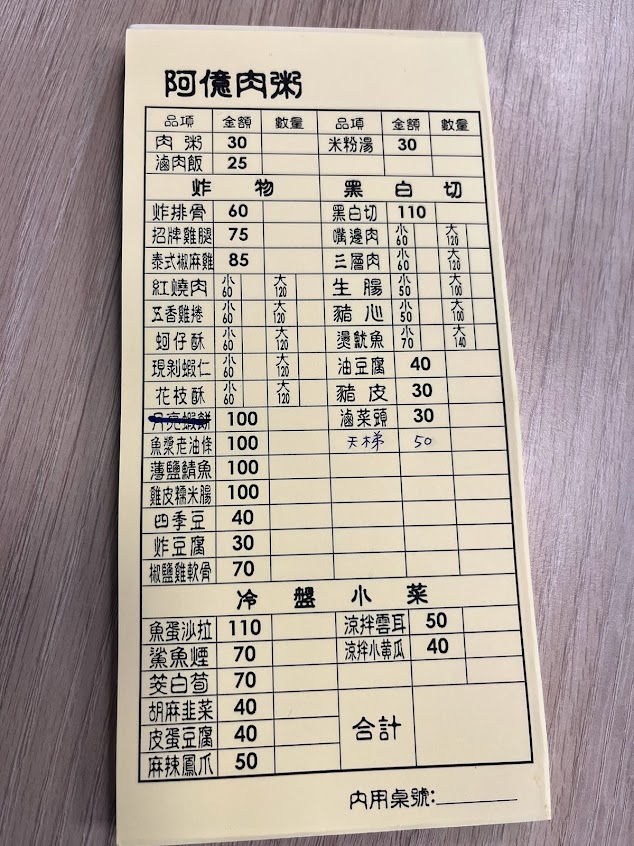 阿億肉粥
品項 金額 數量 品項 金額 數量
肉粥 30 米粉湯 30
滷肉飯 25
炸物 黑白切
炸排骨 60 黑白切 110
招牌雞腿 75 嘴邊肉 小60 大120
泰式椒麻雞 85 三層肉 小60 大120
紅燒肉 小60 大120 生腸 小50 大100
五香雞捲 小60 大120 豬心 小50 大100
蚵仔酥 小60 大120 燙魷魚 小70 大140
現剝蝦仁 小60 大120 油豆腐 40
花枝酥 小60 大120 豬皮 30
月亮蝦餅 100 滷菜頭 30
魚漿老油條 100 天梯 50
薄鹽鯖魚 100
雞皮糯米腸 100
四季豆 40
炸豆腐 30
椒鹽雞軟骨 70
冷盤小菜
魚蛋沙拉 110 涼拌雲耳 50
鯊魚煙 70 涼拌小黃瓜 40
茭白筍 70
胡麻韭菜 40 合計
皮蛋豆腐 40
麻辣鳳爪 50
內用桌號: